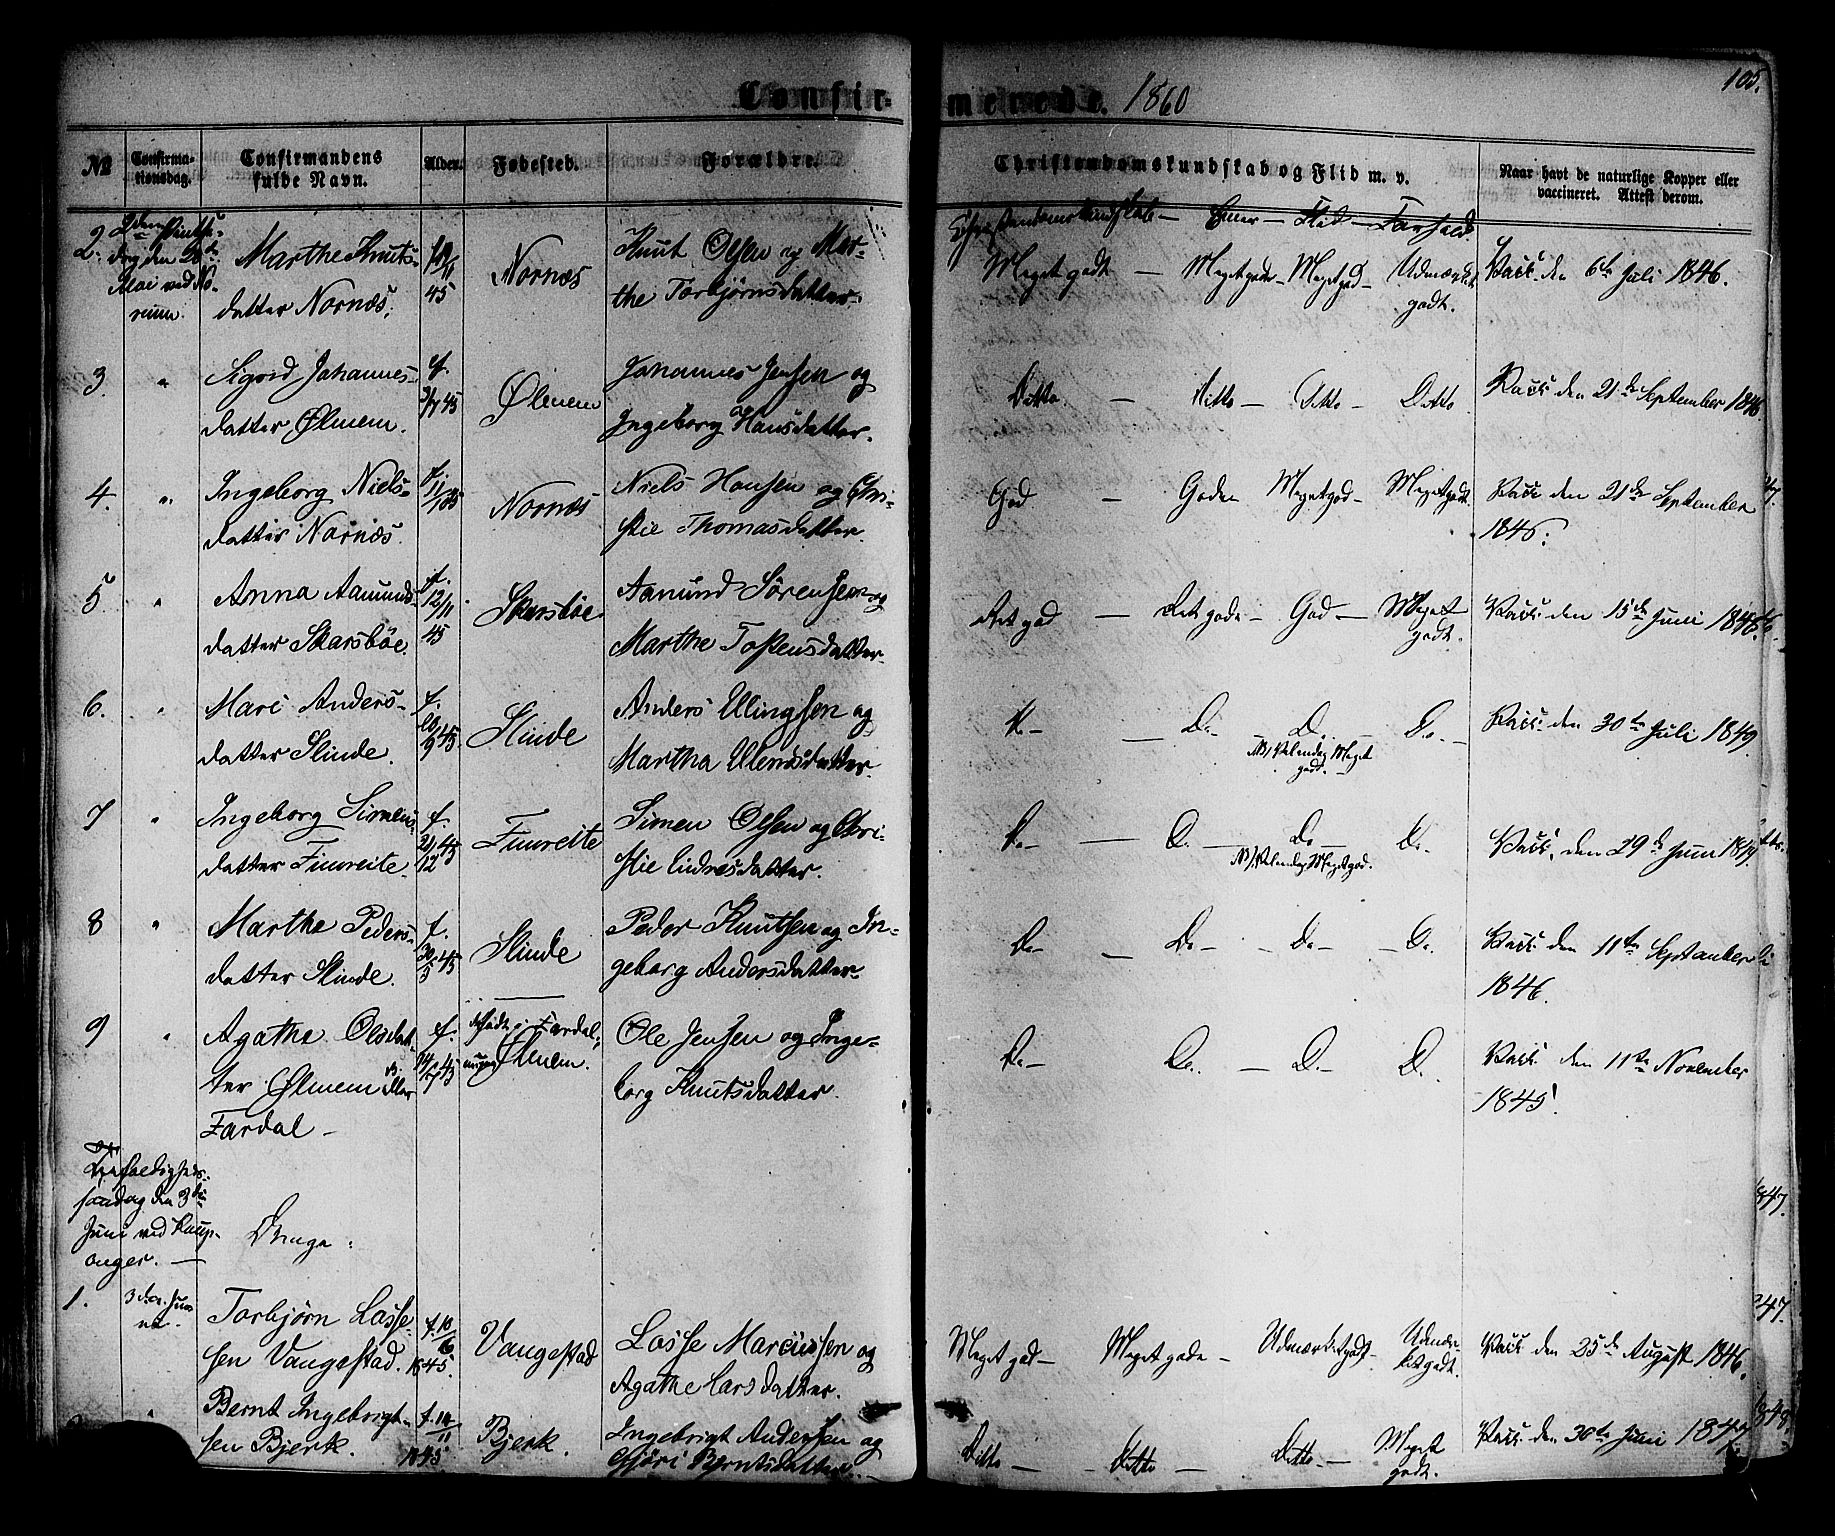 Confir-
merede. 1860
105.
№
Confirma-
tionsdag.
Confirmandens
fulde Navn.
Alder.
Fødested.
Forældre.
Christendomskundskab og Flid m. v.
Naar havt de naturlige Kopper eller
vaccineret. Attest derom.
Christendomskundskab — Evner — Flid — Forhold.
2. 2den Pintse-
dag den 28de
Mai ved No-
rum.
Marthe Knuts-
datter Nornæs.
45
Nornæs
Knut Olsen og Mar-
the Torbjørnsdatter.
Meget godt — Meget gode — Meget god — Udmærket
godt.
Vacc. den 6te Juli 1846.
3. "
Sigrid Johannes-
datter Ølmem.
f.
3/7 45
Ølmem
Johannes Jensen og
Ingeborg Hansdatter.
Ditto — Ditto — Ditto — Ditto
Vacc. den 21de September 1846.
4. "
Ingeborg Niels-
datter Nornæs.
f.
Nornæs
Niels Hansen og Chri-
stie Thomasdatter.
God — Gode Meget god — Meget godt.
Vacc. den 21de September
1846.
5 "
Anna Aamunds-
datter Skarsbøe.
f.
12/11
45
Skarsbøe
Aamund Sørensen og
Marthe Tostensdatter
Ret god — Ret gode — God — Meget
godt.
Vacc. den 15de Juni 1846.
6. "
Mari Anders-
datter Slinde.
f.
20/9 45
Slinde
Anders Ellingsen og
Martha Ellendsdatter.
D. — D. — D. — Do. —
NB/ Udenad Meget
godt. —
Vacc. den 30te Juli 1849
7 "
Ingeborg Simens-
datter Fimreite.
f.
21/12 45
Fimreite
Simen Olsen og Chri-
stie Endresdatter.
Do — D. — Do — Do.
NB/ Udenad Meget god.
Vacc. den 29de Juni 1849
8 "
Marthe Peders-
datter Slinde.
f.
30/5 45
Slinde
Peder Knutsen og In-
geborg Andersdatter.
Do — Do — Do — Do.
Vacc. den 11te September
1846.
9 "
Agathe Olsdat-
ter Ølmem eller
Fardal —
f.
14/7 45
Fardal,
Ølmem.
Ole Jensen og Inge-
borg Knutsdatter.
Do — Do. — D. — D.
Vacc. den 11te November
1845.
Trefoldigheds-
søndag den 3die
Juni ved Kaup-
anger. —
Drenge.
1. 3die Juni
Torbjørn Lasse-
sen Vangestad.
f. 10/6
1845.
Vangestad
Lasse Marcussen og
Agathe Larsdatter.
Meget god — Meget gode — Udmærket godt — Udmær-
ket godt.
Vacc. den 25de August 1846.
"
Bernt Ingebrigt-
sen Bjerk.
f. 14/11
1845
Bjerk.
Ingebrigt Andersen og
Gjøri Berntsdatter. —
Ditto — Ditto — Ditto — Meget
godt.
Vacc. den 30te Juni 1847.